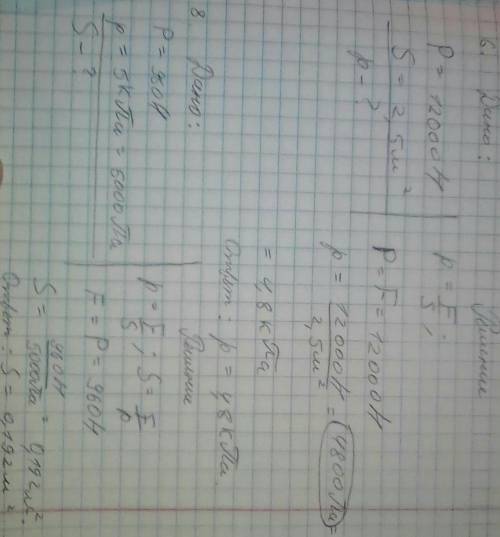 6. Дано:
P = 12000 Н
S = 2,5 м²
p - ?
Решение
p = F/S;
P = F = 12000 Н
p = 12000 Н / 2,5 м² = 4800 Па =
= 4,8 кПа
Ответ: p = 4,8 кПа.
8. Дано:
P = 960 Н
p = 5 кПа = 5000 Па
S - ?
Решение
p = F/S; S = F/p
F = P = 960 Н
S = 960 Н / 5000 Па = 0,192 м².
Ответ: S = 0,192 м²